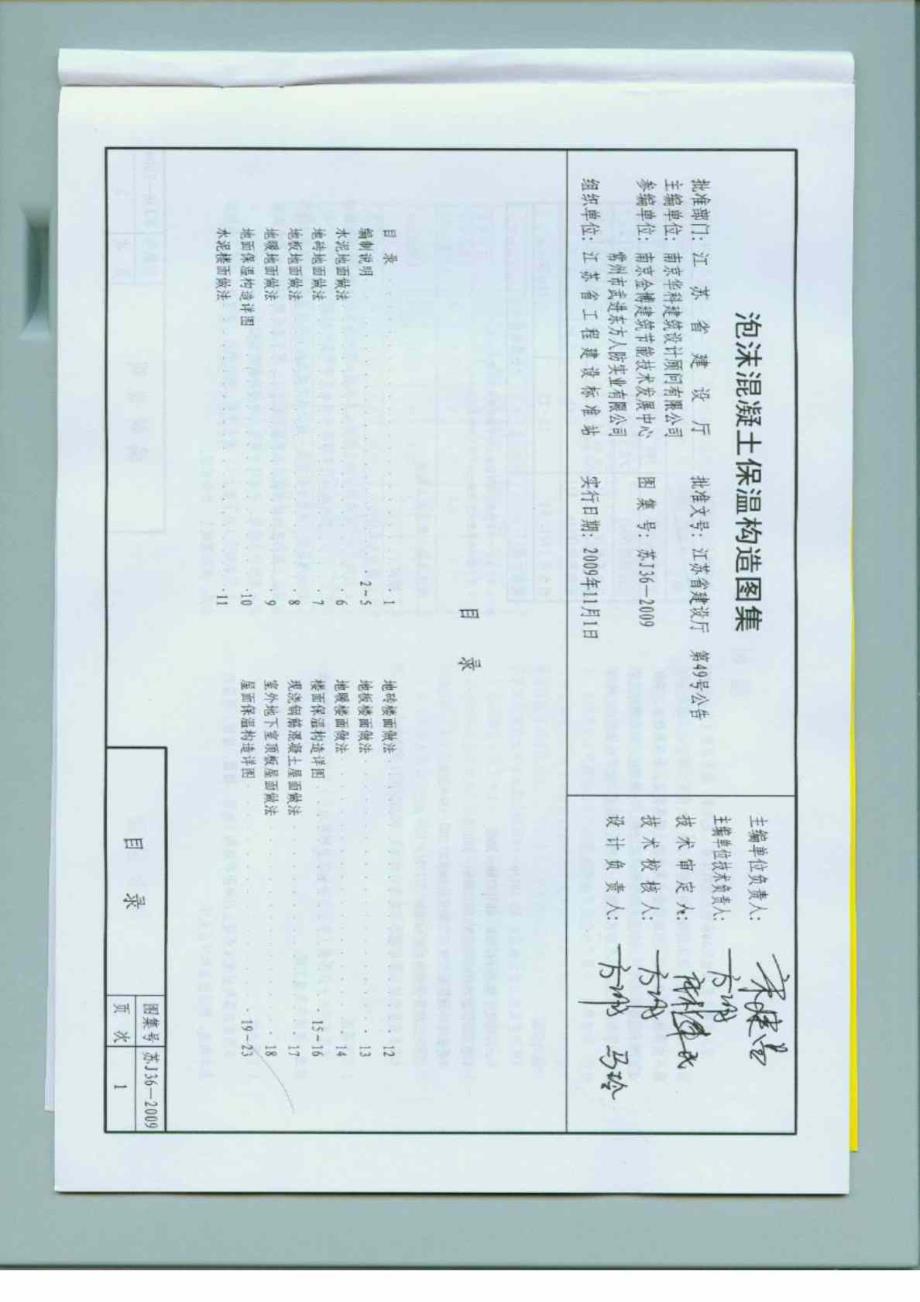 泡沫混凝土保温构造图集
批准部门：江苏省建设厅 批准文号：江苏省建设厅 第49号公告
主编单位：南京华科建筑设计顾问有限公司
参编单位：南京金博建筑节能技术发展中心 图集号：苏J36—2009
常州市武进东方人防实业有限公司
组织单位：江苏省工程建设标准站 实行日期：2009年11月1日
主编单位负责人：
主编单位技术负责人：
技术审定人：
技术校核人：
设计负责人： 马玲
目 录
目录 1
编制说明 2-5
水泥地面做法 6
地砖地面做法 7
地板地面做法 8
地暖地面做法 9
地面保温构造详图 10
水泥楼面做法 11
地砖楼面做法 12
地板楼面做法 13
地暖楼面做法 14
楼面保温构造详图 15-16
现浇钢筋混凝土屋面做法 17
室外地下室顶板屋面做法 18
屋面保温构造详图 19-23
目 录
图集号 苏J36—2009
页 次 1